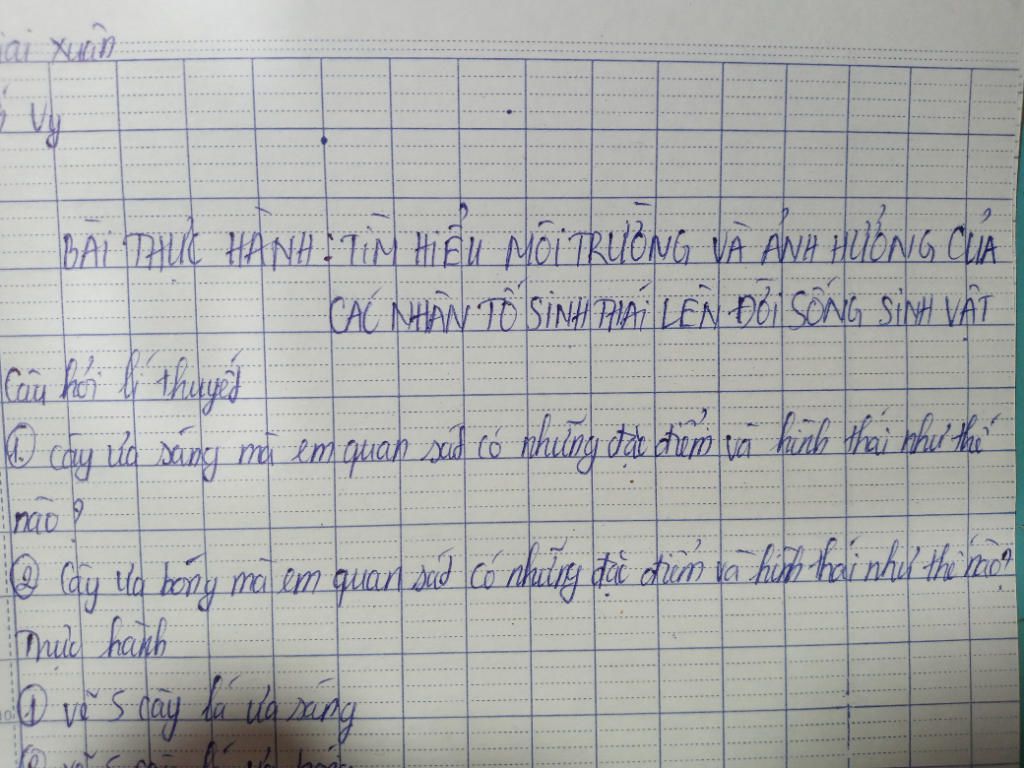 Xuân
Vy
BÀI THỰC HÀNH : TÌM HIỂU MÔI TRƯỜNG VÀ ẢNH HƯỞNG CỦA
CÁC NHÂN TỐ SINH THÁI LÊN ĐỜI SỐNG SINH VẬT
Câu hỏi lí thuyết
① Cây ưa sáng mà em quan sát có những đặc điểm và hình thái như thế
nào ?
② Cây ưa bóng mà em quan sát có những đặc điểm và hình thái như thế nào?
Thực hành
① vẽ 5 cây lá ưa sáng
② vẽ 5 cây lá ưa bóng